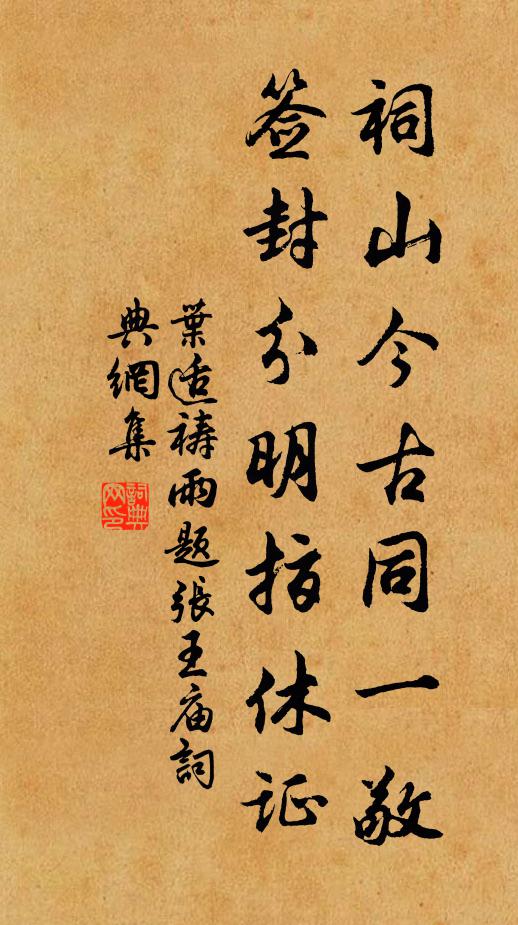 祠山今古同一敬
签封分明指休证
葉适祷雨题張王庙詞
典網集
詞典網印